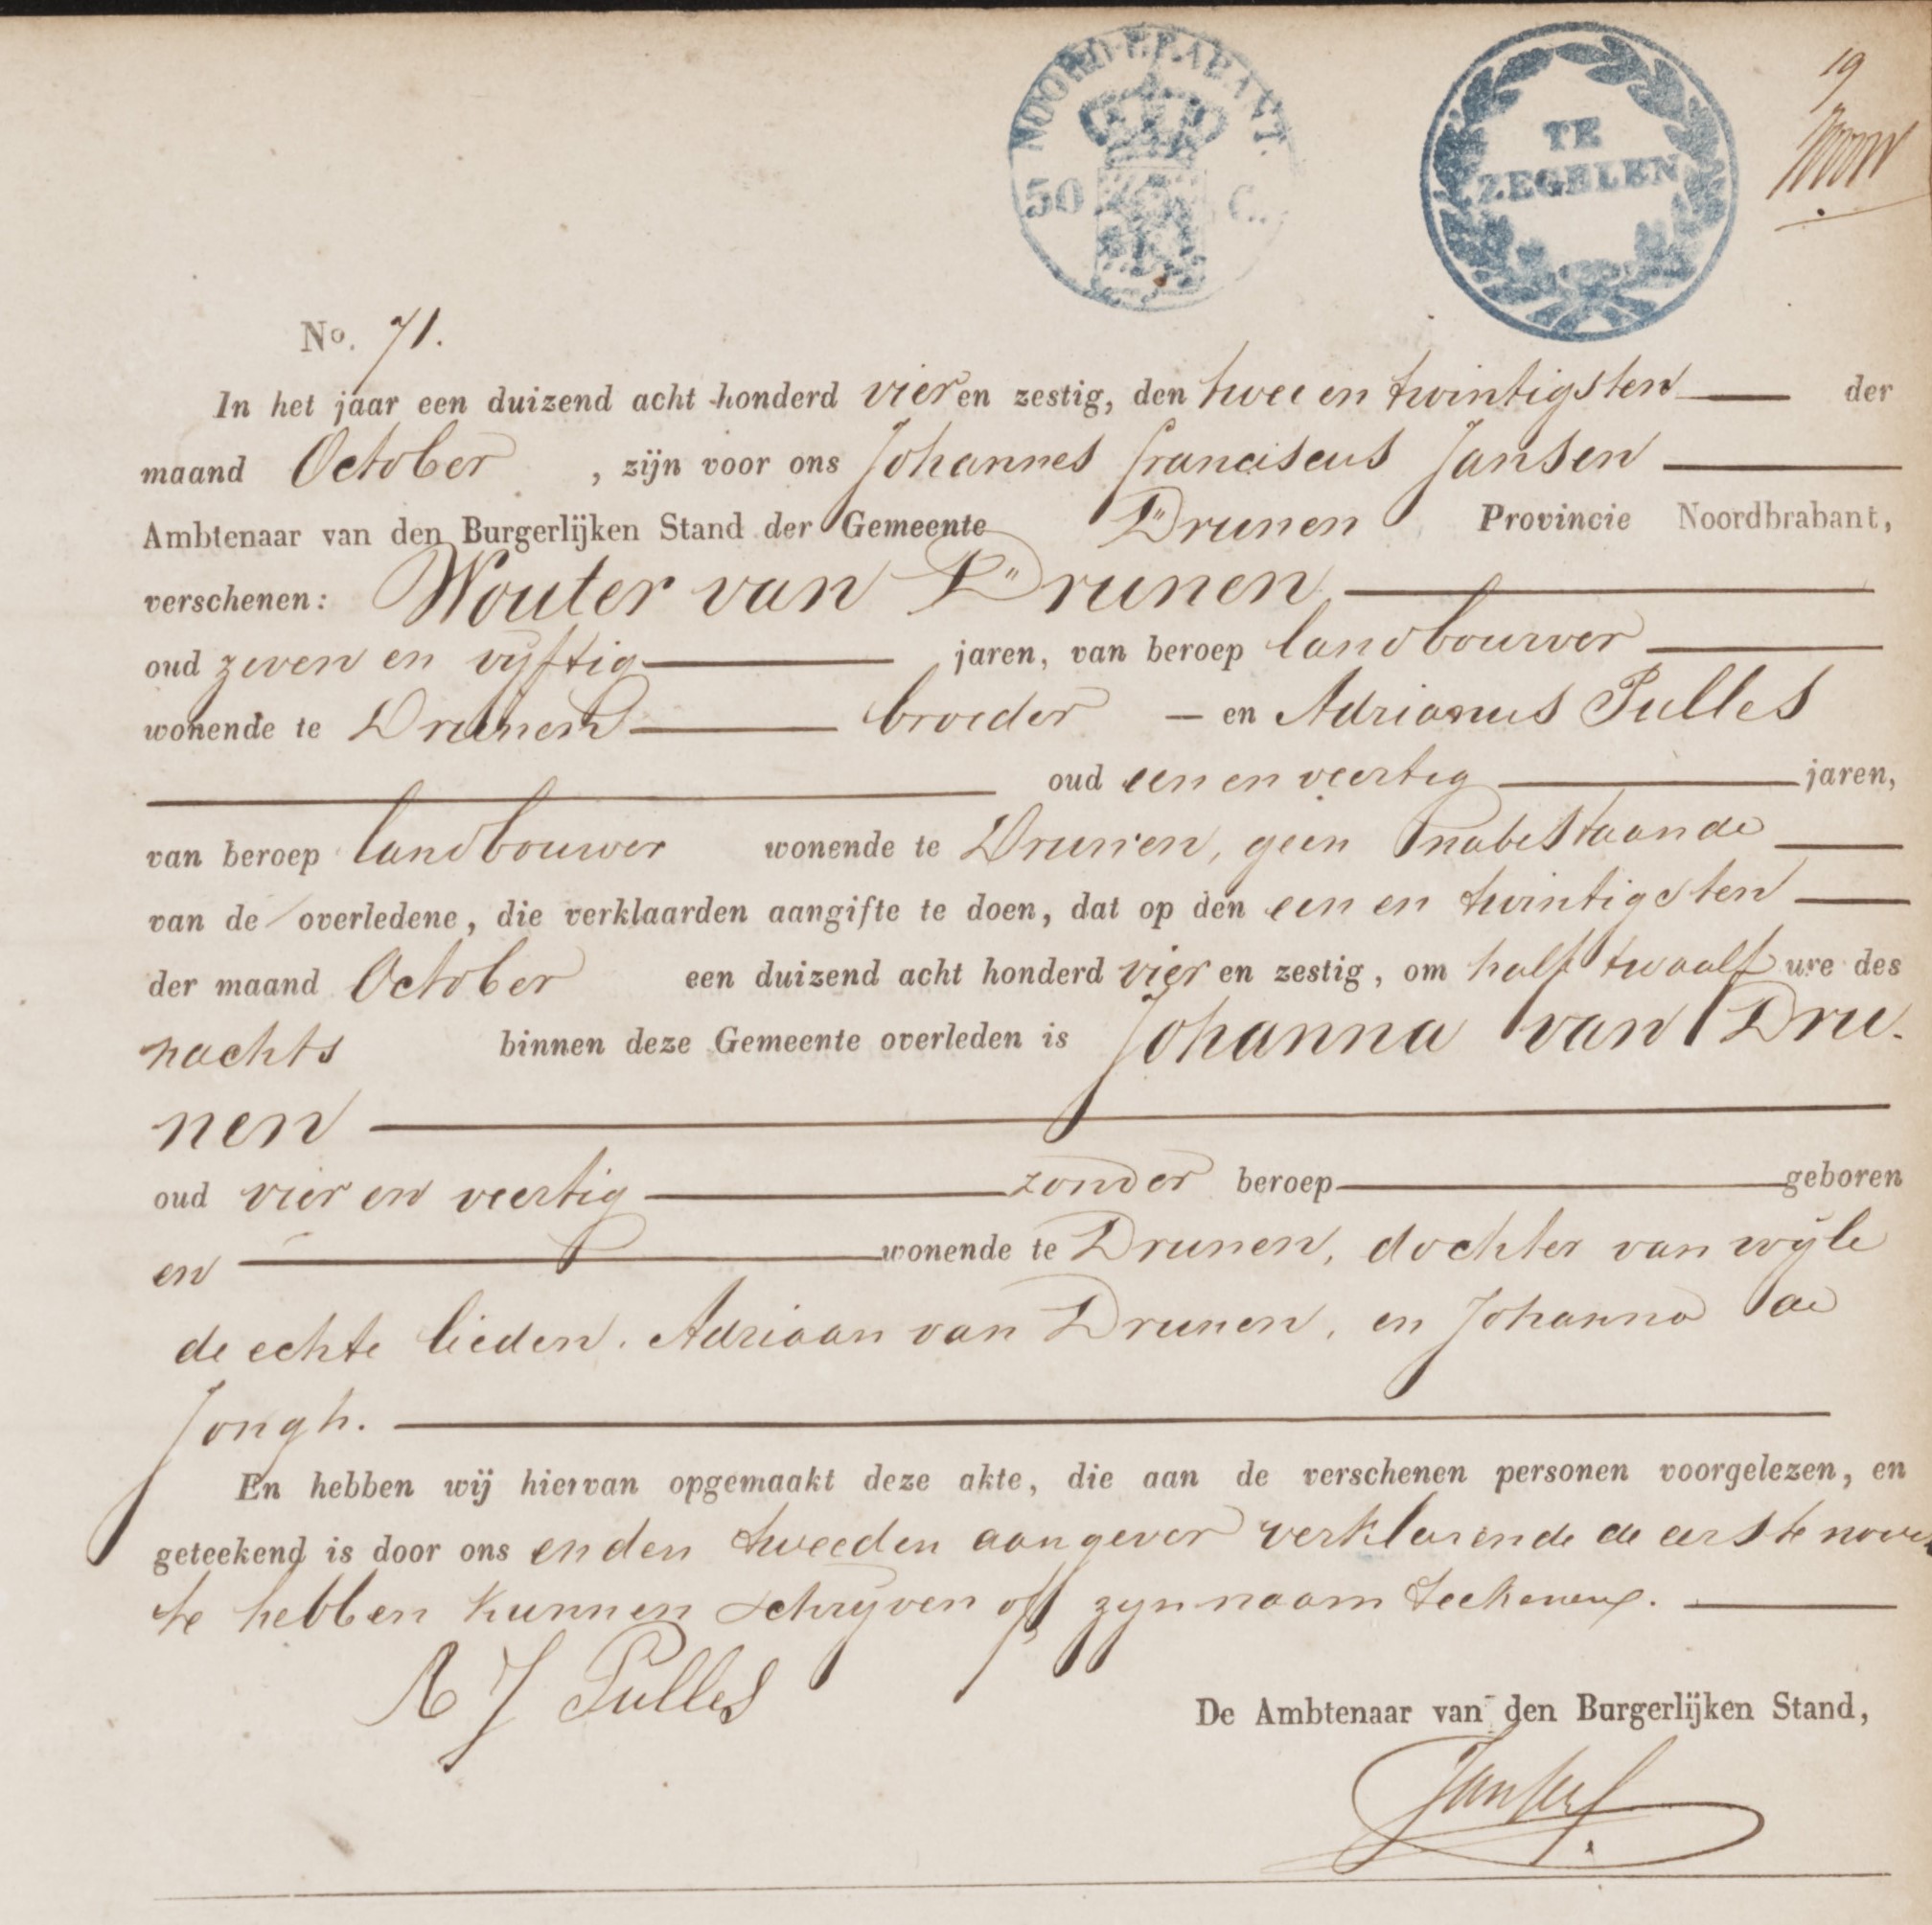 NOORD-BRABANT.
50 C.
TE
ZEGELEN
19
No. 71.
In het jaar een duizend acht honderd vier en zestig, den twee en twintigsten der
maand October , zijn voor ons Johannes Franciscus Jansen
Ambtenaar van den Burgerlijken Stand der Gemeente Drunen Provincie Noordbrabant,
verschenen: Wouter van Drunen
oud zeven en vijftig jaren, van beroep landbouwer
wonende te Drunen broeder — en Adrianus Pulles
oud een en veertig jaren,
van beroep landbouwer wonende te Drunen, geen nabestaande
van de overledene, die verklaarden aangifte te doen, dat op den een en twintigsten
der maand October een duizend acht honderd vier en zestig, om half twaalf ure des
nachts binnen deze Gemeente overleden is Johanna van Dru-
nen
oud vier en veertig zonder beroep geboren
en wonende te Drunen, dochter van wijle
de echte lieden. Adriaan van Drunen, en Johanna de
Jongh.
En hebben wij hiervan opgemaakt deze akte, die aan de verschenen personen voorgelezen, en
geteekend is door ons en den tweeden aangever verklarende de eerste nooit
te hebben kunnen schrijven of zijn naam teekenen.
A J Pulles
De Ambtenaar van den Burgerlijken Stand,
Jansen